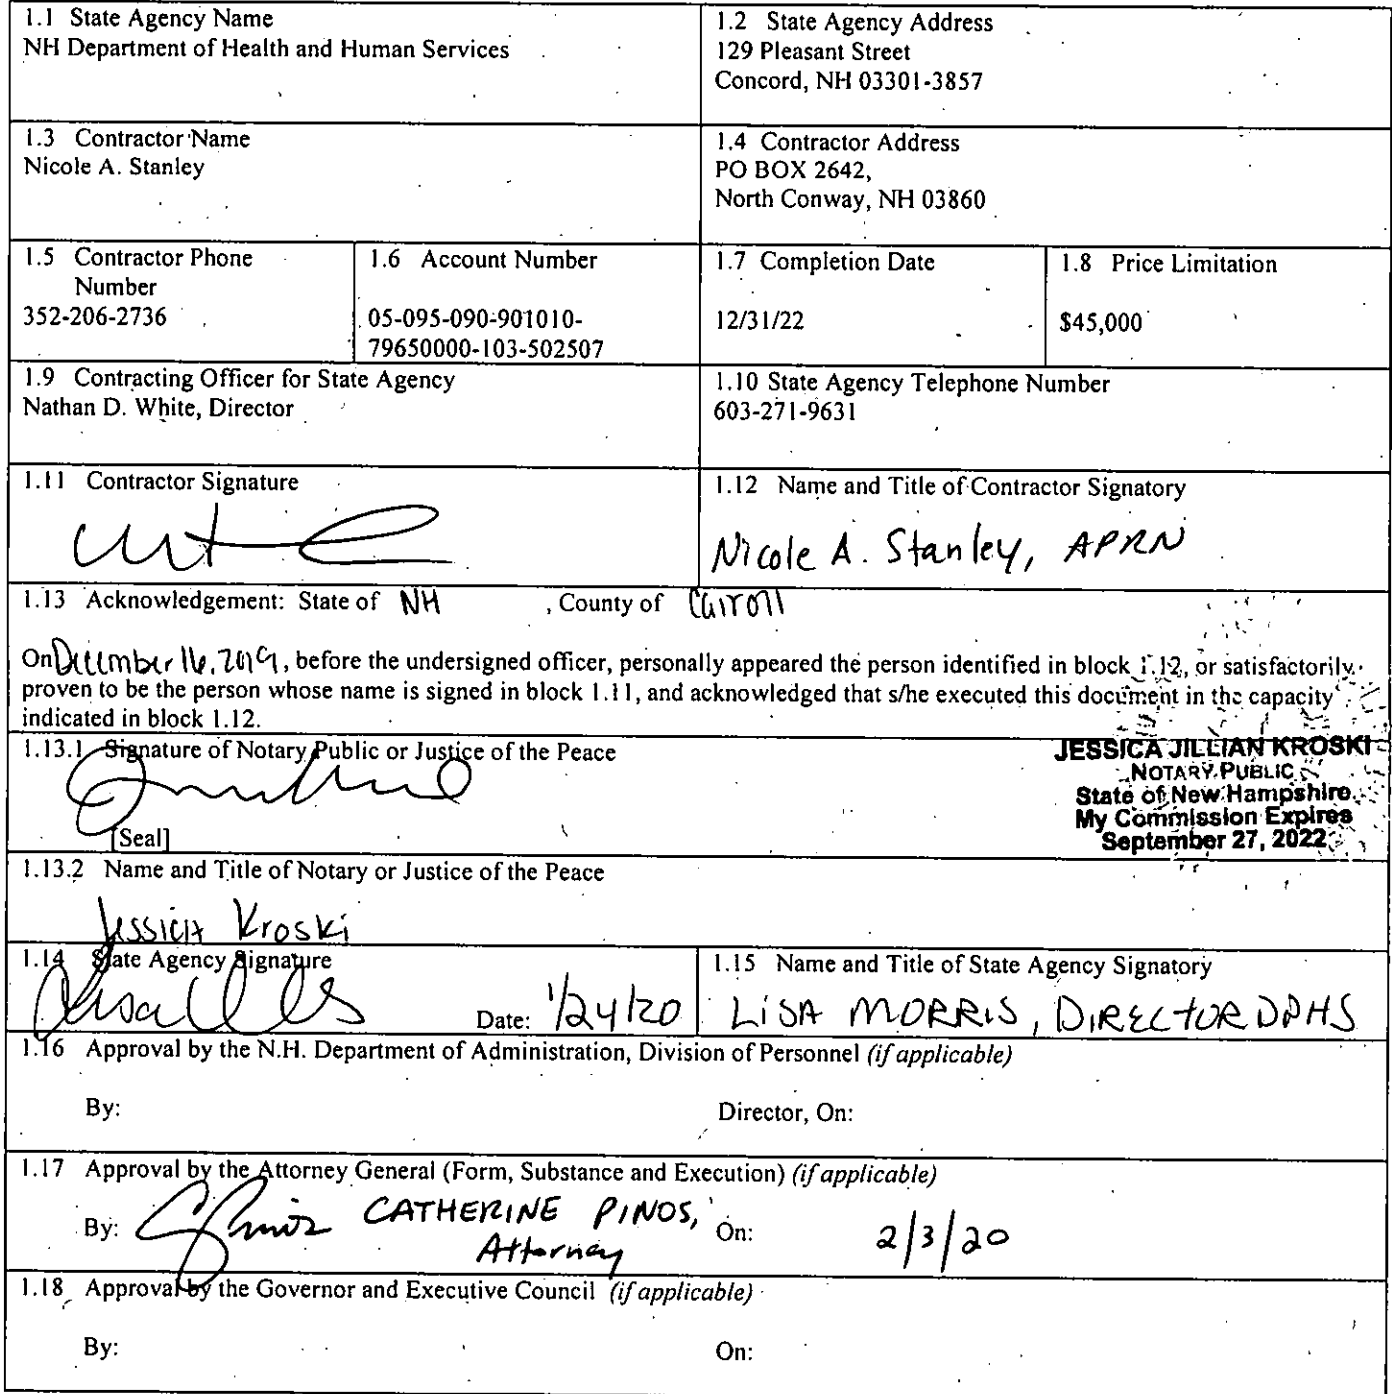 1.1 State Agency Name
NH Department of Health and Human Services
1.2 State Agency Address
129 Pleasant Street
Concord, NH 03301-3857
1.3 Contractor Name
Nicole A. Stanley
1.4 Contractor Address
PO BOX 2642,
North Conway, NH 03860
1.5 Contractor Phone
Number
352-206-2736
1.6 Account Number
05-095-090-901010-
79650000-103-502507
1.7 Completion Date
12/31/22
1.8 Price Limitation
$45,000
1.9 Contracting Officer for State Agency
Nathan D. White, Director
1.10 State Agency Telephone Number
603-271-9631
1.11 Contractor Signature
1.12 Name and Title of Contractor Signatory
Nicole A. Stanley, APRN
1.13 Acknowledgement: State of NH , County of Carroll
On December 16, 2019, before the undersigned officer, personally appeared the person identified in block 1.12, or satisfactorily
proven to be the person whose name is signed in block 1.11, and acknowledged that s/he executed this document in the capacity
indicated in block 1.12.
1.13.1 Signature of Notary Public or Justice of the Peace
[Seal]
JESSICA JILLIAN KROSKI
NOTARY PUBLIC
State of New Hampshire
My Commission Expires
September 27, 2022
1.13.2 Name and Title of Notary or Justice of the Peace
Jessica Kroski
1.14 State Agency Signature
Date: 1/24/20
1.15 Name and Title of State Agency Signatory
LISA MORRIS, DIRECTOR DPHS
1.16 Approval by the N.H. Department of Administration, Division of Personnel (if applicable)
By: Director, On:
1.17 Approval by the Attorney General (Form, Substance and Execution) (if applicable)
By: CATHERINE PINOS, On: 2/3/20
Attorney
1.18 Approval by the Governor and Executive Council (if applicable)
By: On: